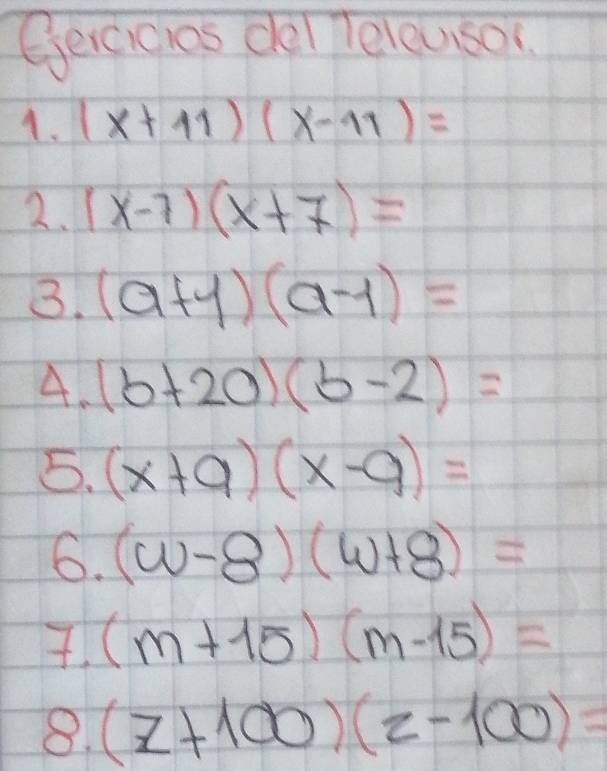 Ejercicios del Televisor.
1. (x+11)(x-11)=
2. (x-7)(x+7)=
3. (a+1)(a-1)=
4. (b+20)(b-2)=
5. (x+9)(x-9)=
6. (w-8)(w+8)=
7. (m+15)(m-15)=
8. (z+100)(z-100)=